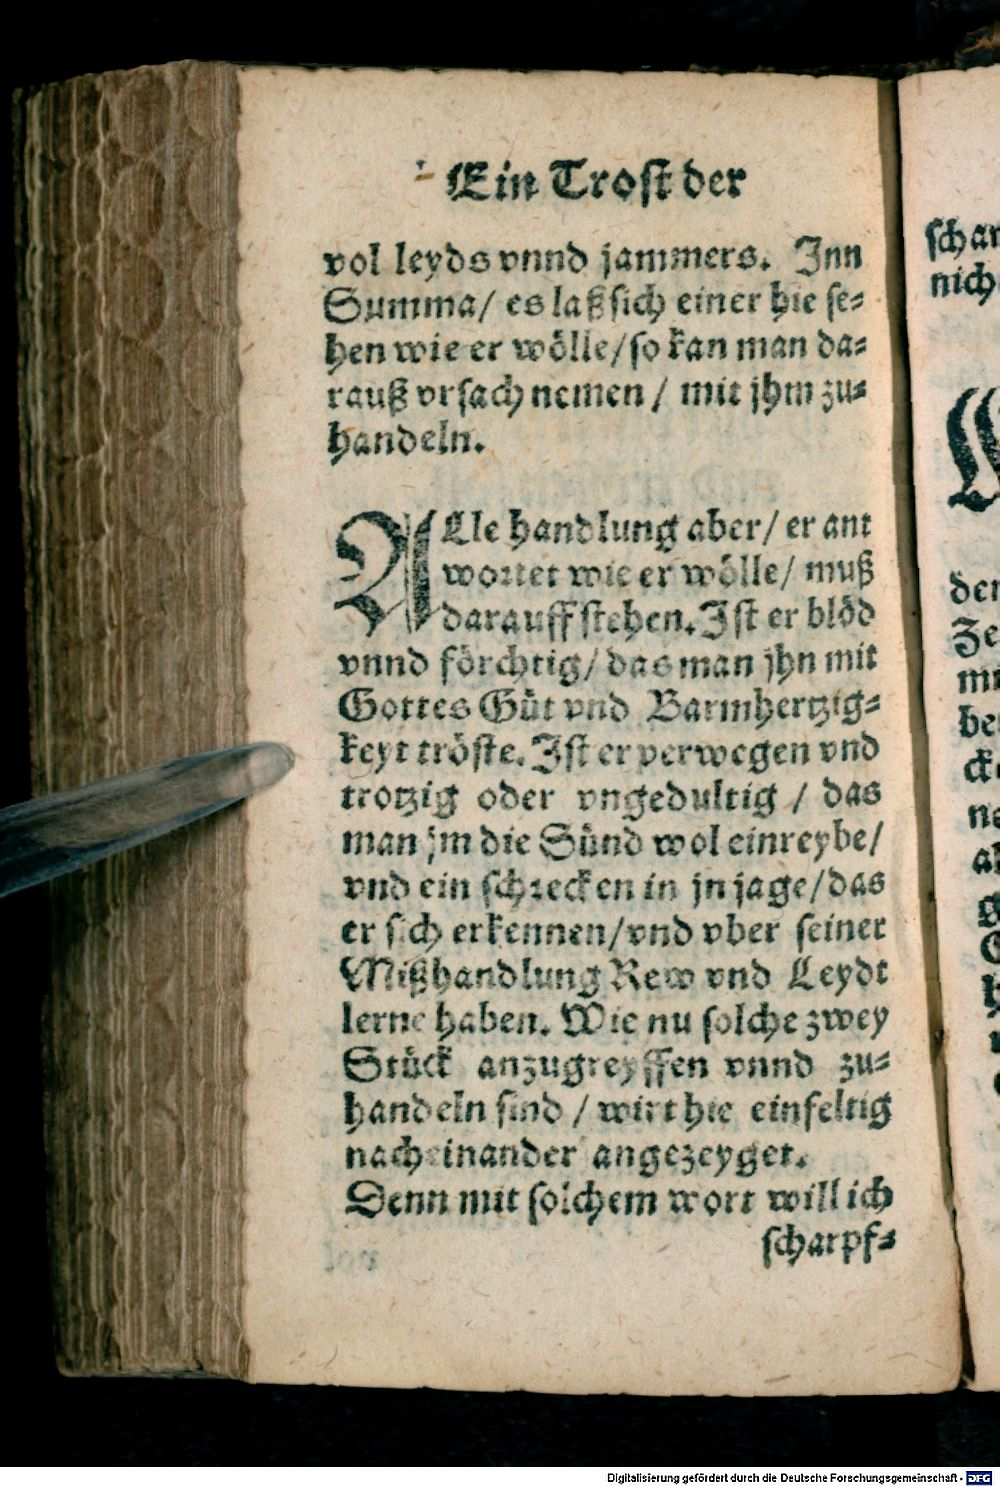 Ein Trost der
vol leyds vnnd jammers. Inn
Summa/ es laß sich einer hie se-
hen wie er wölle/ so kan man da-
rauß vrsach nemen/ mit jhm zu-
handeln.
ALle handlung aber/ er ant
wortet wie er wölle/ muß
darauff stehen. Ist er blöd
vnnd förchtig/ das man jhn mit
Gottes Güt vnd Barmhertzig-
keyt tröste. Ist er verwegen vnd
trotzig oder vngedultig / das
man jm die Sünd wol einreybe/
vnd ein schrecken in jn jage/ das
er sich erkennen/ vnd vber seiner
Mißhandlung Rew vnd Leydt
lerne haben. Wie nu solche zwey
Stück anzugreyffen vnnd zu-
handeln sind / wirt hie einfeltig
nacheinander angezeyget.
Denn mit solchem wort will ich
scharpf-
schar
nich
W
den
Ze
mi
be
cke
ne
al
g
Digitalisierung gefördert durch die Deutsche Forschungsgemeinschaft - DFG